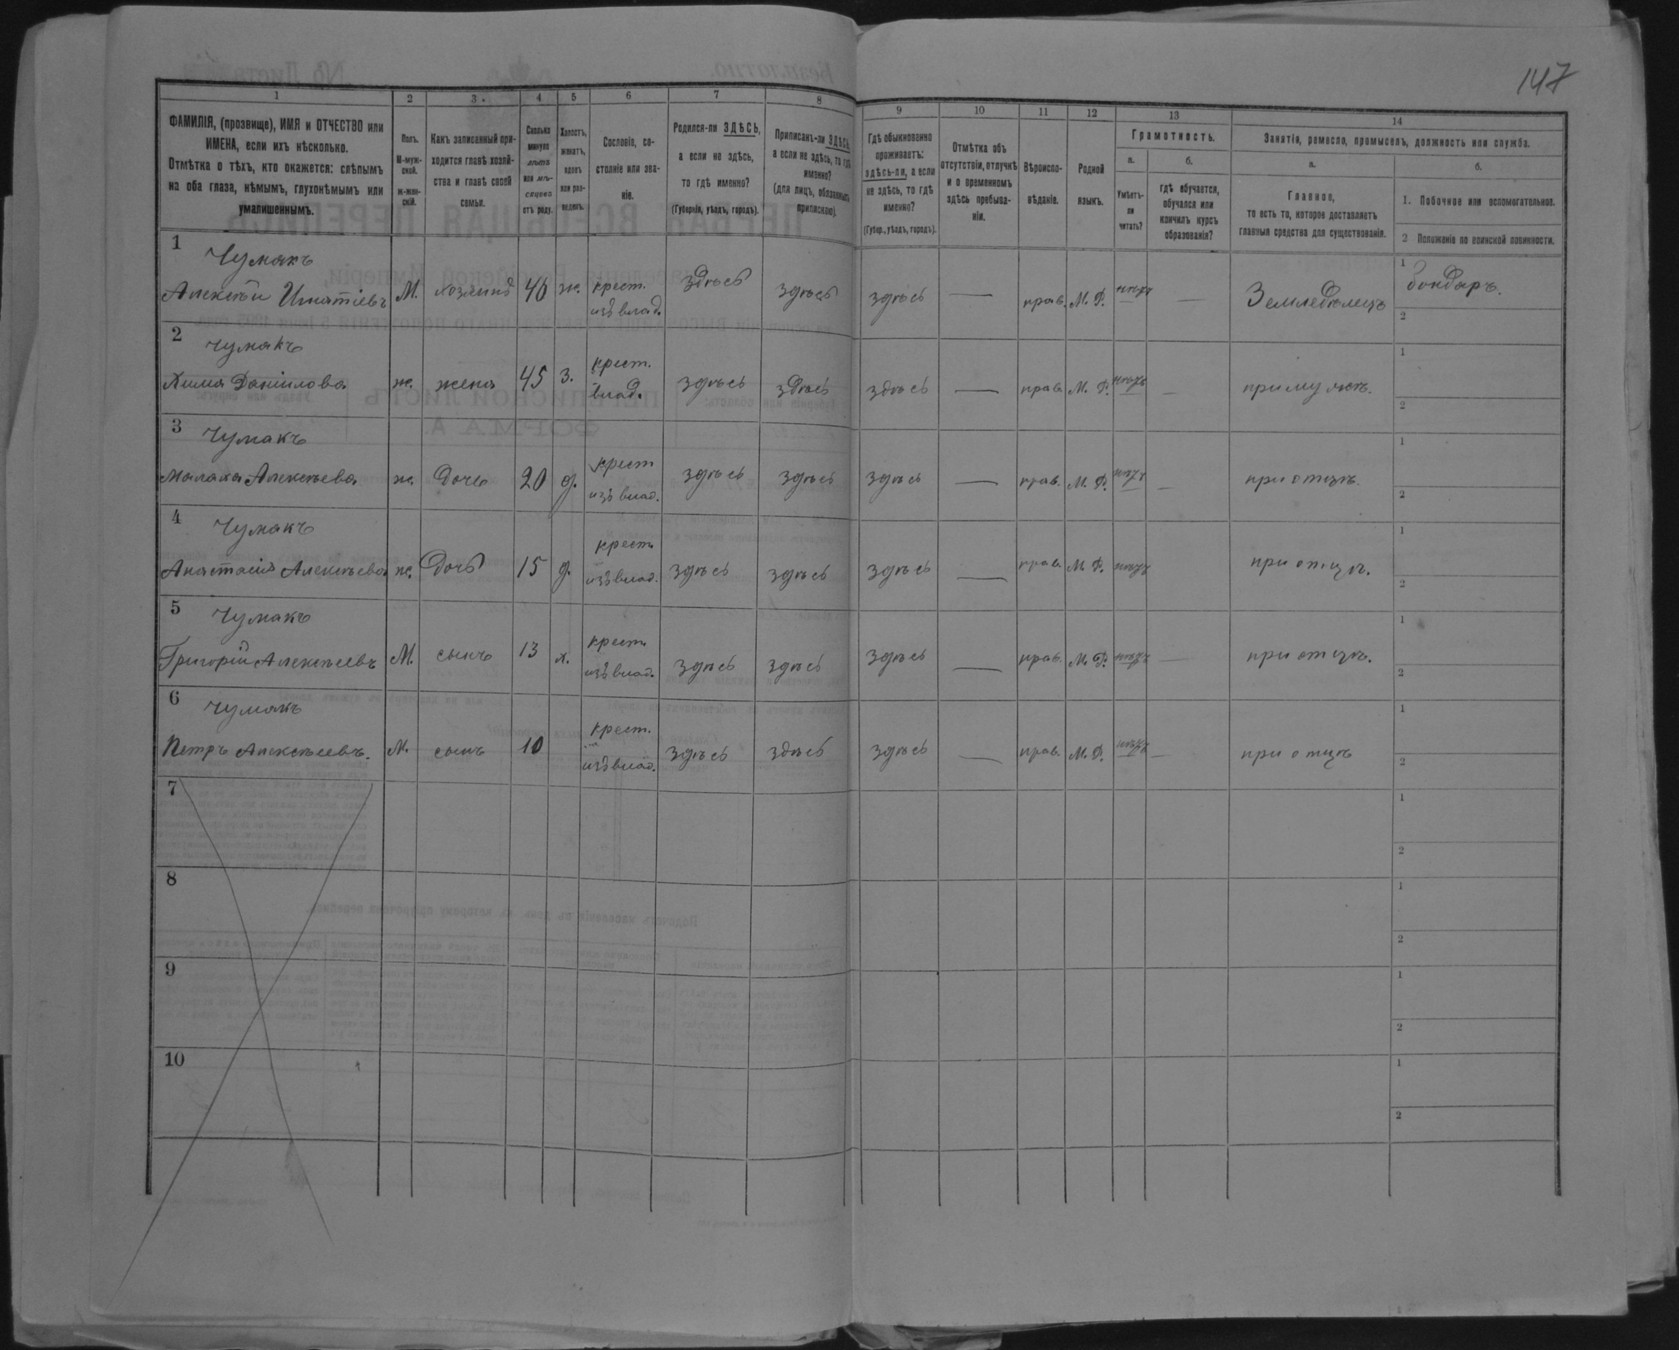 147
1 2 3. 4 5 6 7 8 9 10 11 12 13 14
ФАМИЛІЯ, (прозвище), ИМЯ и ОТЧЕСТВО или
ИМЕНА, если ихъ нѣсколько.
Отмѣтка о тѣхъ, кто окажется: слѣпымъ
на оба глаза, нѣмымъ, глухонѣмымъ или
умалишеннымъ.
Полъ.
М-муж-
ской.
ж-жен-
скій.
Какъ записанный при-
ходится главѣ хозяй-
ства и главѣ своей
семьи.
Сколько
минуло
лѣтъ
или мѣ-
сяцевъ
отъ роду.
Холостъ,
женатъ,
вдовъ
или раз-
веденъ.
Сословіе, со-
стояніе или зва-
ніе.
Родился-ли ЗДѢСЬ,
а если не здѣсь,
то гдѣ именно?
(Губернія, уѣздъ, городъ).
Приписанъ-ли ЗДѢСЬ,
а если не здѣсь, то гдѣ
именно?
(для лицъ, обязанныхъ
припискою).
Гдѣ обыкновенно
проживаетъ:
здѣсь-ли, а если
не здѣсь, то гдѣ
именно?
(Губер., уѣздъ, городъ).
Отмѣтка объ
отсутствіи, отлучкѣ
и о временномъ
здѣсь пребыва-
ніи.
Вѣроиспо-
вѣданіе.
Родной
языкъ.
Грамотность.
а.
Умѣетъ-
ли
читать?
б.
гдѣ обучается,
обучался или
кончилъ курсъ
образованія?
Занятія, ремесло, промыселъ, должность или служба.
а.
Главное,
то есть то, которое доставляетъ
главныя средства для существованія.
б.
1. Побочное или вспомогательное.
2 Положеніе по воинской повинности.
1 Чумакъ
Алексѣй Игнатіевъ М. хозяинъ 46 ж. крест. изъ влад. здѣсь здѣсь здѣсь — прав. М. Р. нѣтъ — Земледѣлецъ 1 бондарь.
2
2 Чумакъ
Хима Даніилова ж. жена 45 з. крест. влад. здѣсь здѣсь здѣсь — прав. М. Р. нѣтъ — при мужѣ.
1
2
3 Чумакъ
Малаха Алексѣева ж. дочь 20 д. крест изъ влад. здѣсь здѣсь здѣсь — прав. М. Р. нѣтъ — при отцѣ.
1
2
4 Чумакъ
Анастасія Алексѣева ж. Дочь 15 д. крест. изъ влад. здѣсь здѣсь здѣсь — прав. М. Р. нѣтъ при отцѣ.
1
2
5 Чумакъ
Григорій Алексѣевъ М. сынъ 13 х. крест. изъ влад. здѣсь здѣсь здѣсь — прав. М. Р. нѣтъ — при отцѣ.
1
2
6 Чумакъ
Петръ Алексѣевъ. М. сынъ 10 крест. изъ влад. здѣсь здѣсь здѣсь — прав. М. Р. нѣтъ — при отцѣ
1
2
7
1
2
8
1
2
9
1
2
10
1
2